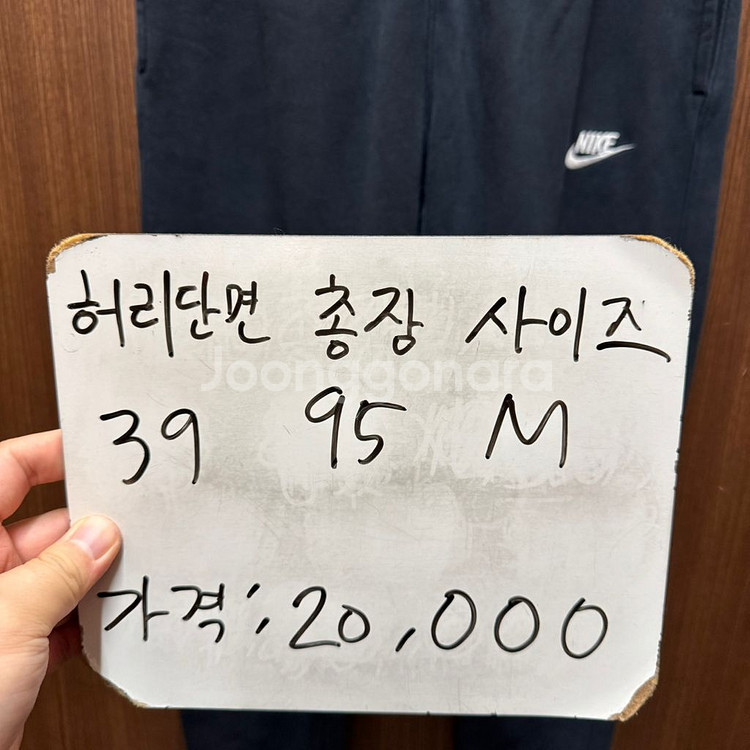 NIKE
허리단면 총장 사이즈
Joonggonara
39 95 M
가격; 20,000